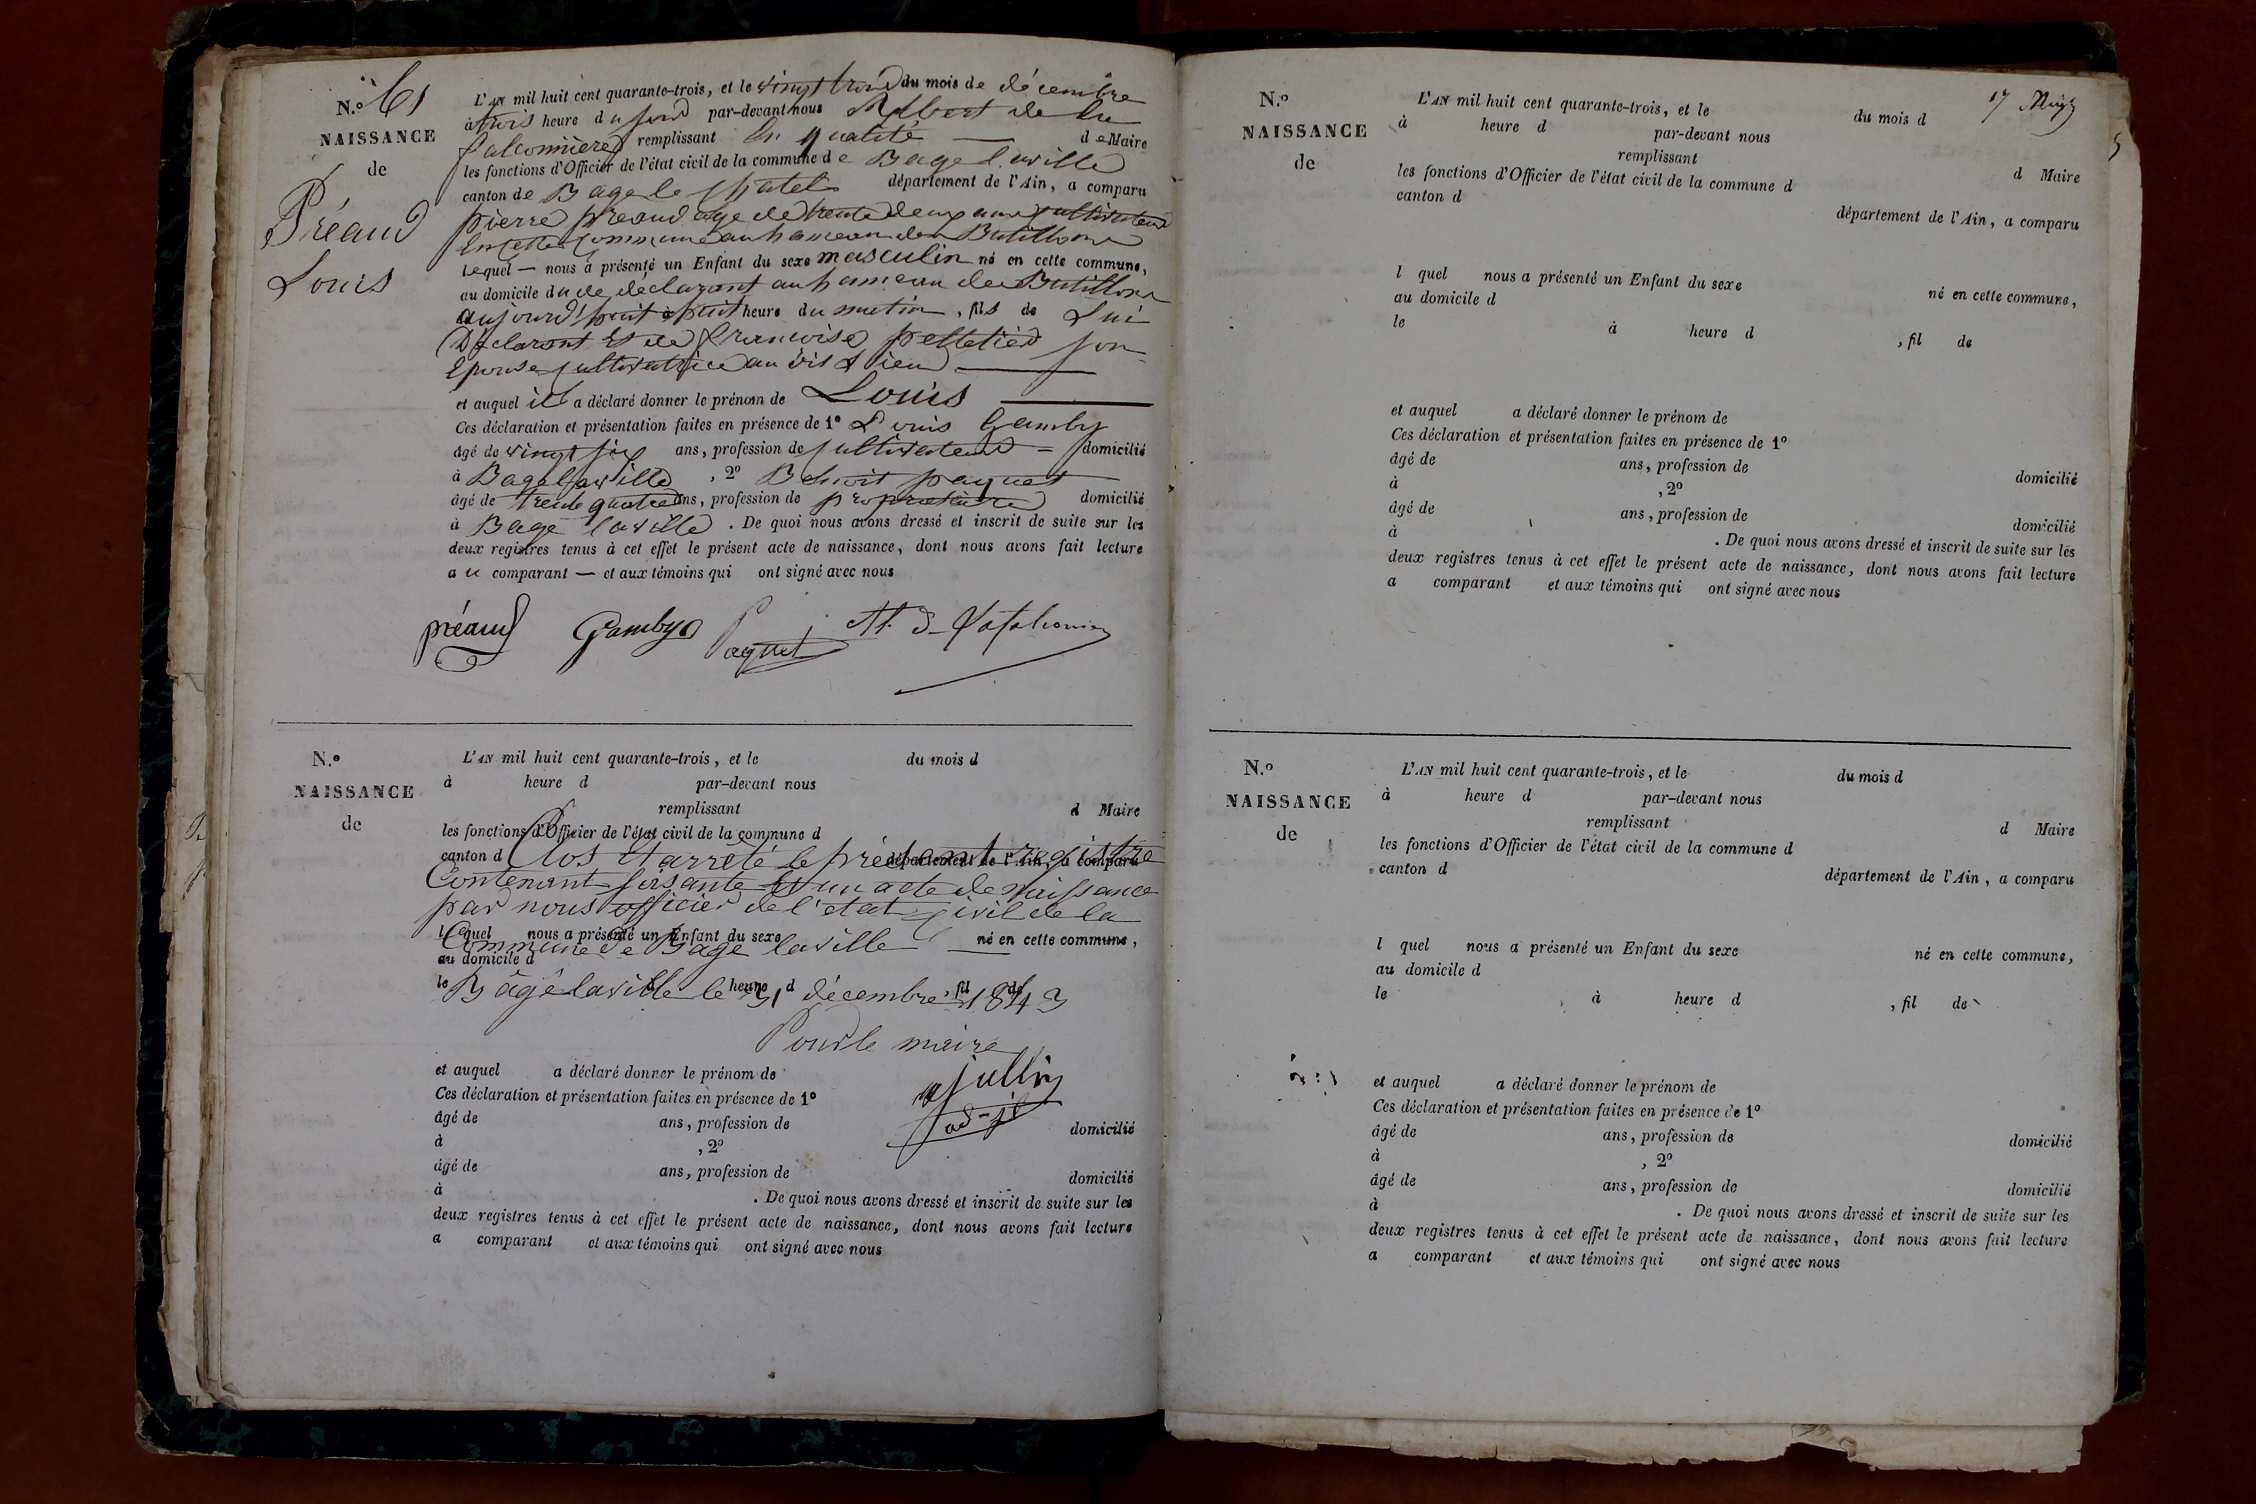 N.° 61
NAISSANCE
de
Préaud
Louis
L'AN mil huit cent quarante-trois, et le vingt trois du mois de décembre
à trois heure du soir par-devant nous Albert de la
falconnière remplissant en qualité de Maire
les fonctions d'Officier de l'état civil de la commune de Bage laville
canton de Bage le Chatel département de l'Ain, a comparu
pierre preaud age de trente deux ans cultivateur
En cette Commune au hameau des Butillons
Lequel — nous a présenté un Enfant du sexe masculin né en cette commune,
au domicile du de declarant au hameau des Butillons
aujourd'huit à huit heure du matin, fils de Lui
Declarant Et de francoise pelletier son
Epouse Cultivatrice au dit Lieu
et auquel il a déclaré donner le prénom de Louis
Ces déclaration et présentation faites en présence de 1° Louis Gamby
âgé de vingt six ans, profession de Cultivateur = domicilié
à Bage laville , 2° Benoit paquet
âgé de trente quatre ans, profession de propriétaire domicilié
à Bage laville . De quoi nous avons dressé et inscrit de suite sur les
deux registres tenus à cet effet le présent acte de naissance, dont nous avons fait lecture
au comparant — et aux témoins qui ont signé avec nous
préaud Gamby Paquet
N.°
NAISSANCE
de
L'AN mil huit cent quarante-trois, et le du mois d
à heure d par-devant nous
remplissant d Maire
les fonctions d'Officier de l'état civil de la commune d
canton d département de l'Ain, a comparu
Clos et arreté le présent registre
Contenant soisante et un acte de naissance
par nous officier de l'etat Civil de la
l quel nous a présenté un Enfant du sexe né en cette commune,
Commune de Bage laville
au domicile d
le à heure d , fil de
Bâgé laville le 31 décembre 1843
Pour le maire
et auquel a déclaré donner le prénom de
jullin
Ces déclaration et présentation faites en présence de 1°
ad-jt
âgé de ans, profession de domicilié
à , 2°
âgé de ans, profession de domicilié
à . De quoi nous avons dressé et inscrit de suite sur les
deux registres tenus à cet effet le présent acte de naissance, dont nous avons fait lecture
a comparant et aux témoins qui ont signé avec nous
17
N.°
NAISSANCE
de
L'AN mil huit cent quarante-trois, et le du mois d
à heure d par-devant nous
remplissant d Maire
les fonctions d'Officier de l'état civil de la commune d
canton d département de l'Ain, a comparu
l quel nous a présenté un Enfant du sexe né en cette commune,
au domicile d
le à heure d , fil de
et auquel a déclaré donner le prénom de
Ces déclaration et présentation faites en présence de 1°
âgé de ans, profession de domicilié
à , 2°
âgé de ans, profession de domicilié
à . De quoi nous avons dressé et inscrit de suite sur les
deux registres tenus à cet effet le présent acte de naissance, dont nous avons fait lecture
a comparant et aux témoins qui ont signé avec nous
N.°
NAISSANCE
de
L'AN mil huit cent quarante-trois, et le du mois d
à heure d par-devant nous
remplissant d Maire
les fonctions d'Officier de l'état civil de la commune d
canton d département de l'Ain, a comparu
l quel nous a présenté un Enfant du sexe né en cette commune,
au domicile d
le à heure d , fil de
et auquel a déclaré donner le prénom de
Ces déclaration et présentation faites en présence de 1°
âgé de ans, profession de domicilié
à , 2°
âgé de ans, profession de domicilié
à . De quoi nous avons dressé et inscrit de suite sur les
deux registres tenus à cet effet le présent acte de naissance, dont nous avons fait lecture
a comparant et aux témoins qui ont signé avec nous